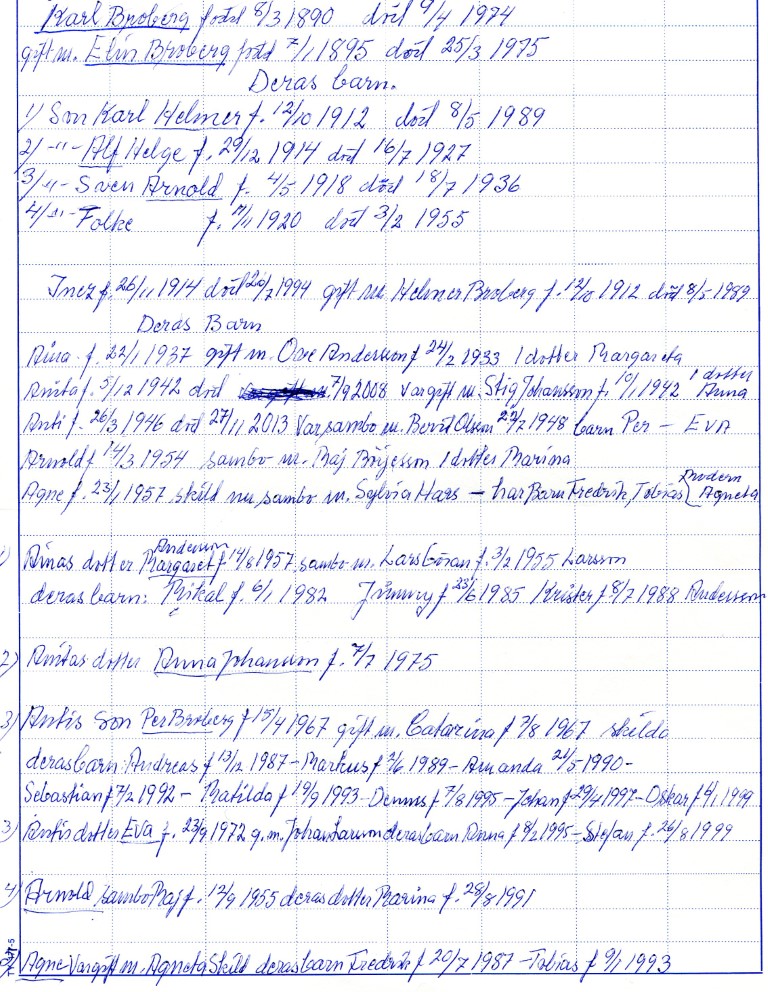 Karl Broberg född 8/3 1890 död 9/4 1974
gift m. Elin Broberg född 7/1 1895 död 25/3 1975
Deras barn.
1/ Son Karl Helmer f. 12/10 1912 död 8/5 1989
2/ -"- Alf Helge f. 29/12 1914 död 16/7 1927
3/ -"- Sven Arnold f. 4/5 1918 död 18/7 1936
4/ -"- Folke f. 1920 död 3/2 1955
Inez f. 26/11 1914 död 1994 gift m Helmer Broberg f. 12/10 1912 död 8/5 1989
Deras Barn
Aina f. 22/1 1937 gift m. Ove Andersson f 24/2 1933 1 dotter Margareta
Anita f. 5/12 1942 död 7/9 2008 Vargift m. Stig Johansson f. 10/1 1942 1 dotter Anna
Anti f. 26/3 1946 död 27/11 2013 Varsambo m. Bernt Olsson 1948 barn Per - EVA
Arnold f 14/3 1954 sambo m. Maj Börjesson 1 dotter Marina
Agne f. 23/1 1957 skild nu sambo m. Sylvia Hars - har Barn Fredrik, Tobias { modern Agneta
1) Ainas dotter Margaret Andersson f 14/8 1957 sambo m. Lars Göran f. 3/2 1955 Larsson
deras barn: Mikal f. 6/1 1982 Jimmy f 23/6 1985 Krister f 8/7 1988 Andersson
2) Anitas dotter Anna Johansson f. 7/7 1975
3) Antis Son Per Broberg f 15/4 1967 gift m. Catarina f 7/8 1967 skilda
deras barn: Andreas f 13/12 1987 - Markus f 1989 - Amanda 21/5 1990 -
Sebastian f 7/2 1992 - Matilda f 19/9 1993 - Dennis f 7/8 1995 - Johan f 29/4 1997 - Oskar f 9/1 1999
3) Antis dotter EVA f. 23/9 1972 g. m. Johan deras barn Anna f 8/2 1995 - Stefan f. 26/8 1999
4) Arnold sambo Maj f. 12/9 1955 deras dotter Marina f. 28/8 1991
Agne Vargift m. Agneta Skild deras barn Fredrik f 20/7 1987 - Tobias f 9/1 1993